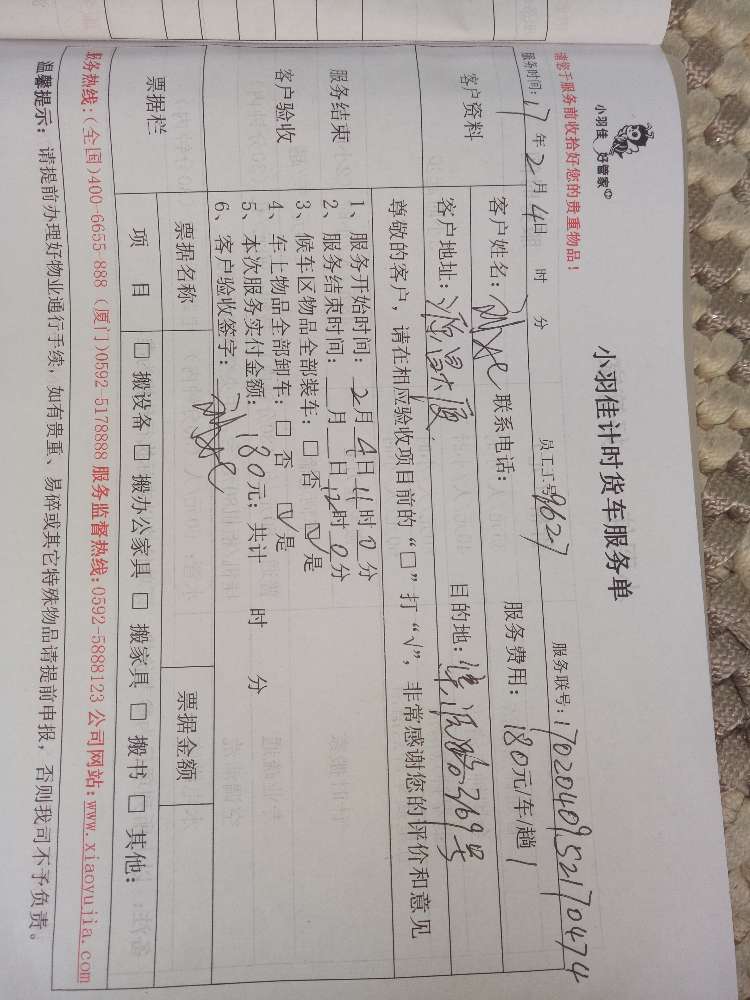 小羽佳 好管家
小羽佳计时货车服务单
请您于服务前收拾好您的贵重物品！
服务时间：17年2月4日 时 分 员工工号9627 服务联号：1702040952170474
客户资料
客户姓名： 联系电话： 服务费用：180元/车/趟
客户地址： 大厦 目的地： 路369号
尊敬的客户，请在相应验收项目前的“□”打“√”，非常感谢您的评价和意见
服务结束
客户验收
1、服务开始时间：2月4日11时0分
2、服务结束时间： 月 日12时0分
3、候车区物品全部装车：□ 否 ☑ 是
4、车上物品全部卸车：□ 否 ☑ 是
5、本次服务实付金额：180元；共计 时 分
6、客户验收签字：
票据栏
票据名称 票据金额
项 目 □ 搬设备 □ 搬办公家具 □ 搬家具 □ 搬书 □ 其他：
服务热线：(全国)400-6655-888 (厦门)0592-5178888 服务监督热线：0592-5888123 公司网站：www.xiaoyujia.com
温馨提示：请提前办理好物业通行手续，如有贵重、易碎或其它特殊物品请提前申报，否则我司不予负责。